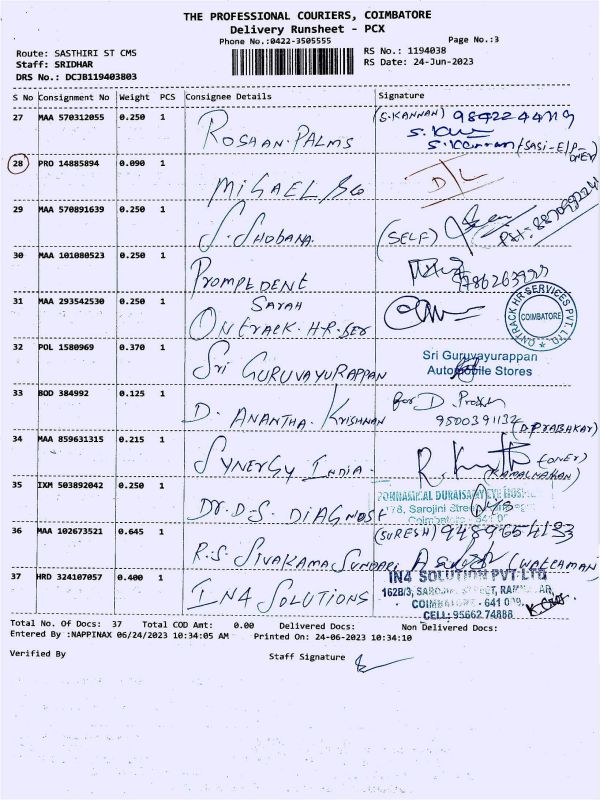 THE PROFESSIONAL COURIERS, COIMBATORE
Delivery Runsheet - PCX
Phone No.:0422-3505555
Page No.:3
Route: SASTHIRI ST CMS
RS No.: 1194038
Staff: SRIDHAR
RS Date: 24-Jun-2023
DRS No.: DCJB119403803
S No Consignment No Weight PCS Consignee Details Signature
27 MAA 570312055 0.250 1 ROSAAN.PALMS
(S.KANNAN)
28 PRO 14885894 0.090 1 D/L
29 MAA 570891639 0.250 1 S.SHOBANA. (SELF)
PH: 8870992241
30 MAA 101080523 0.250 1 PROMPT DENT
31 MAA 293542530 0.250 1 SARAH
ONTRACK.HR.SER
ONTRACK HR SERVICES PVT. LTD.
COIMBATORE
32 POL 1580969 0.370 1 SRI GURUVAYURAPPAN
Sri Guruvayurappan
Automobile Stores
33 BOD 384992 0.125 1 D. ANANTHA. KRISHNAN
for D.
(D.PRABHAKAR)
34 MAA 859631315 0.215 1 SYNERGY INDIA.
35 IXM 503892042 0.250 1 DR.D.S. DIAGNOST
78, Sarojini Street
36 MAA 102673521 0.645 1 R.S. SIVAKAMA SUNDARI
(SURESH) 9489654133
37 HRD 324107057 0.400 1 IN4 SOLUTIONS
IN4 SOLUTION PVT LTD
CELL: 95662 74888
Total No. Of Docs: 37 Total COD Amt: 0.00 Delivered Docs: Non Delivered Docs:
Entered By :NAPPINAX 06/24/2023 10:34:05 AM Printed On: 24-06-2023 10:34:10
Verified By Staff Signature